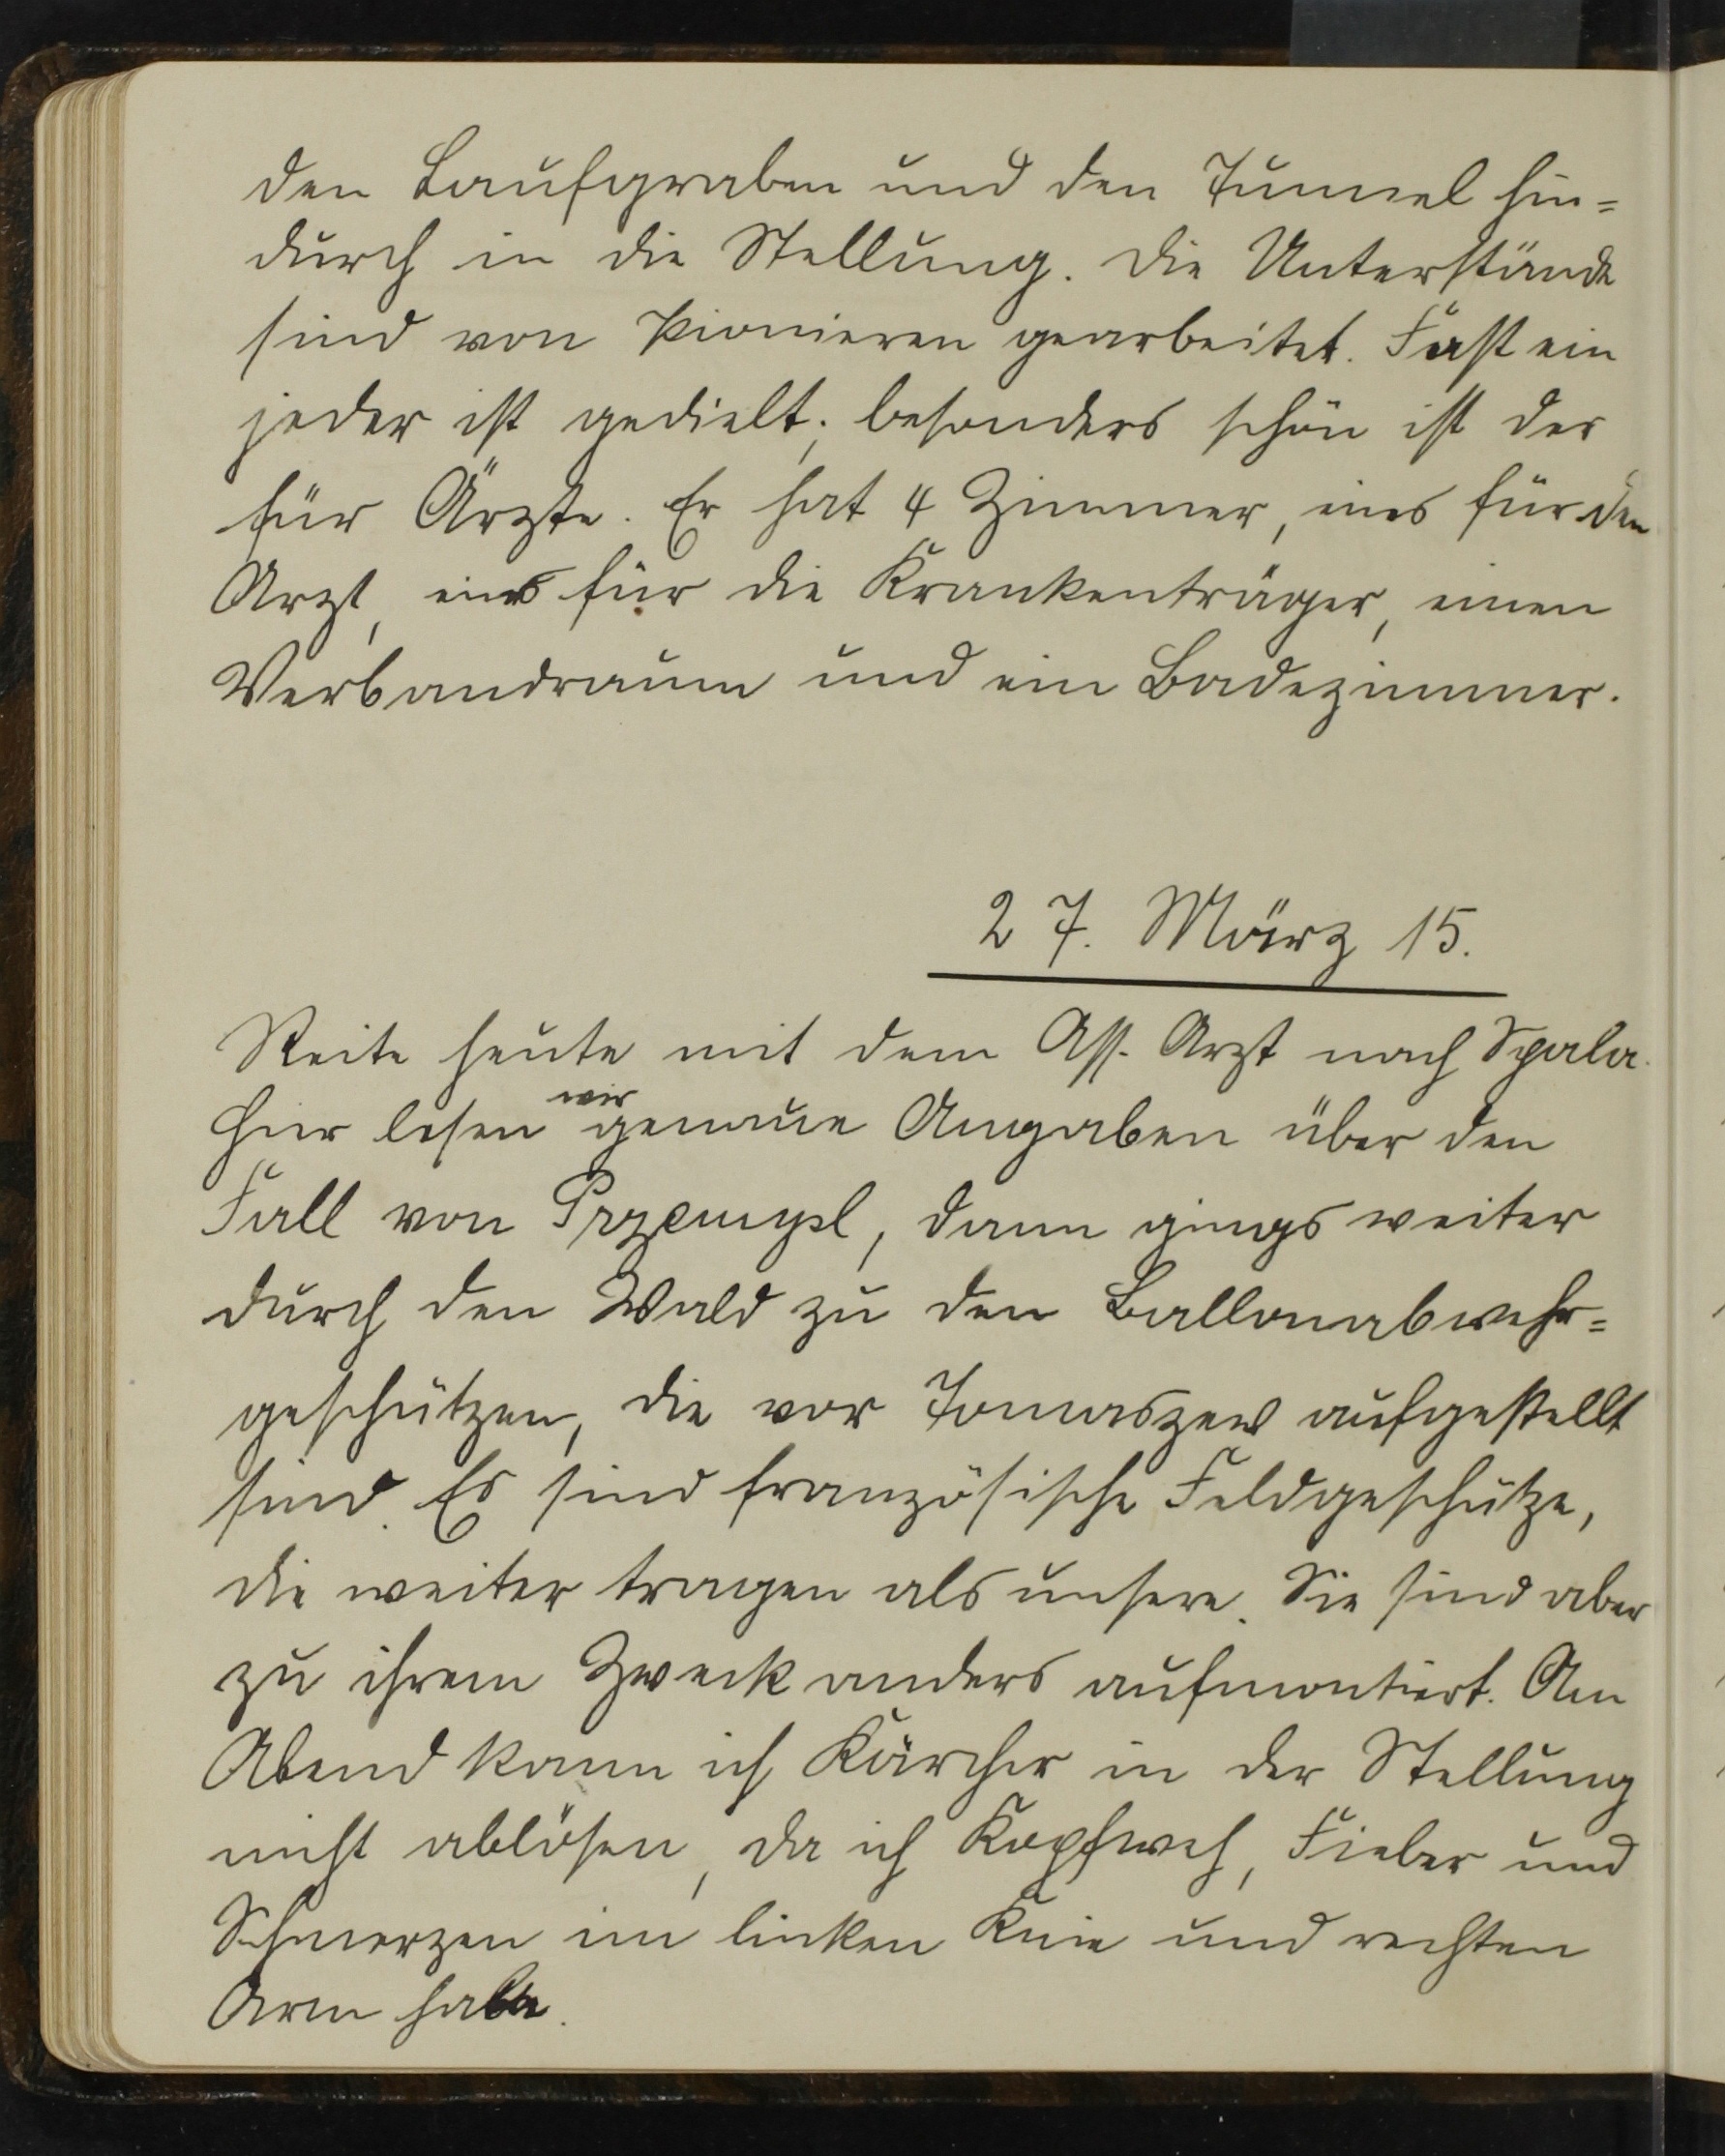 den Laufgraben und den Tunnel hin=
durch in die Stellung. Die Unterstände
sind von Pionieren gearbeitet. Fast ein
jeder ist gedielt; besonders schön ist der
für Ärzte. Er hat 4 Zimmer, eines für den
Arzt, eins für die Krankenträger, einen
Verbandraum und ein Badezimmer.
27. März 15.
Reite heute mit dem Ass. Arzt nach Spala.
Hier lesen wir genaue Angaben über den
Fall von Przemysl, dann gings weiter
durch den Wald zu den Ballonabwehr=
geschützen, die vor Tomaszew aufgestellt
sind. Es sind französische Feldgeschütze,
die weiter tragen als unsere. Sie sind aber
zu ihrem Zweck anders aufmontiert. Am
Abend kann ich Kärcher in der Stellung
nicht ablösen, da ich Kopfweh, Fieber und
Schmerzen im linken Knie und rechten
Arm habe.